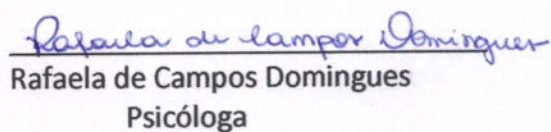 Rafaela de Campos Domingues
Rafaela de Campos Domingues
Psicóloga